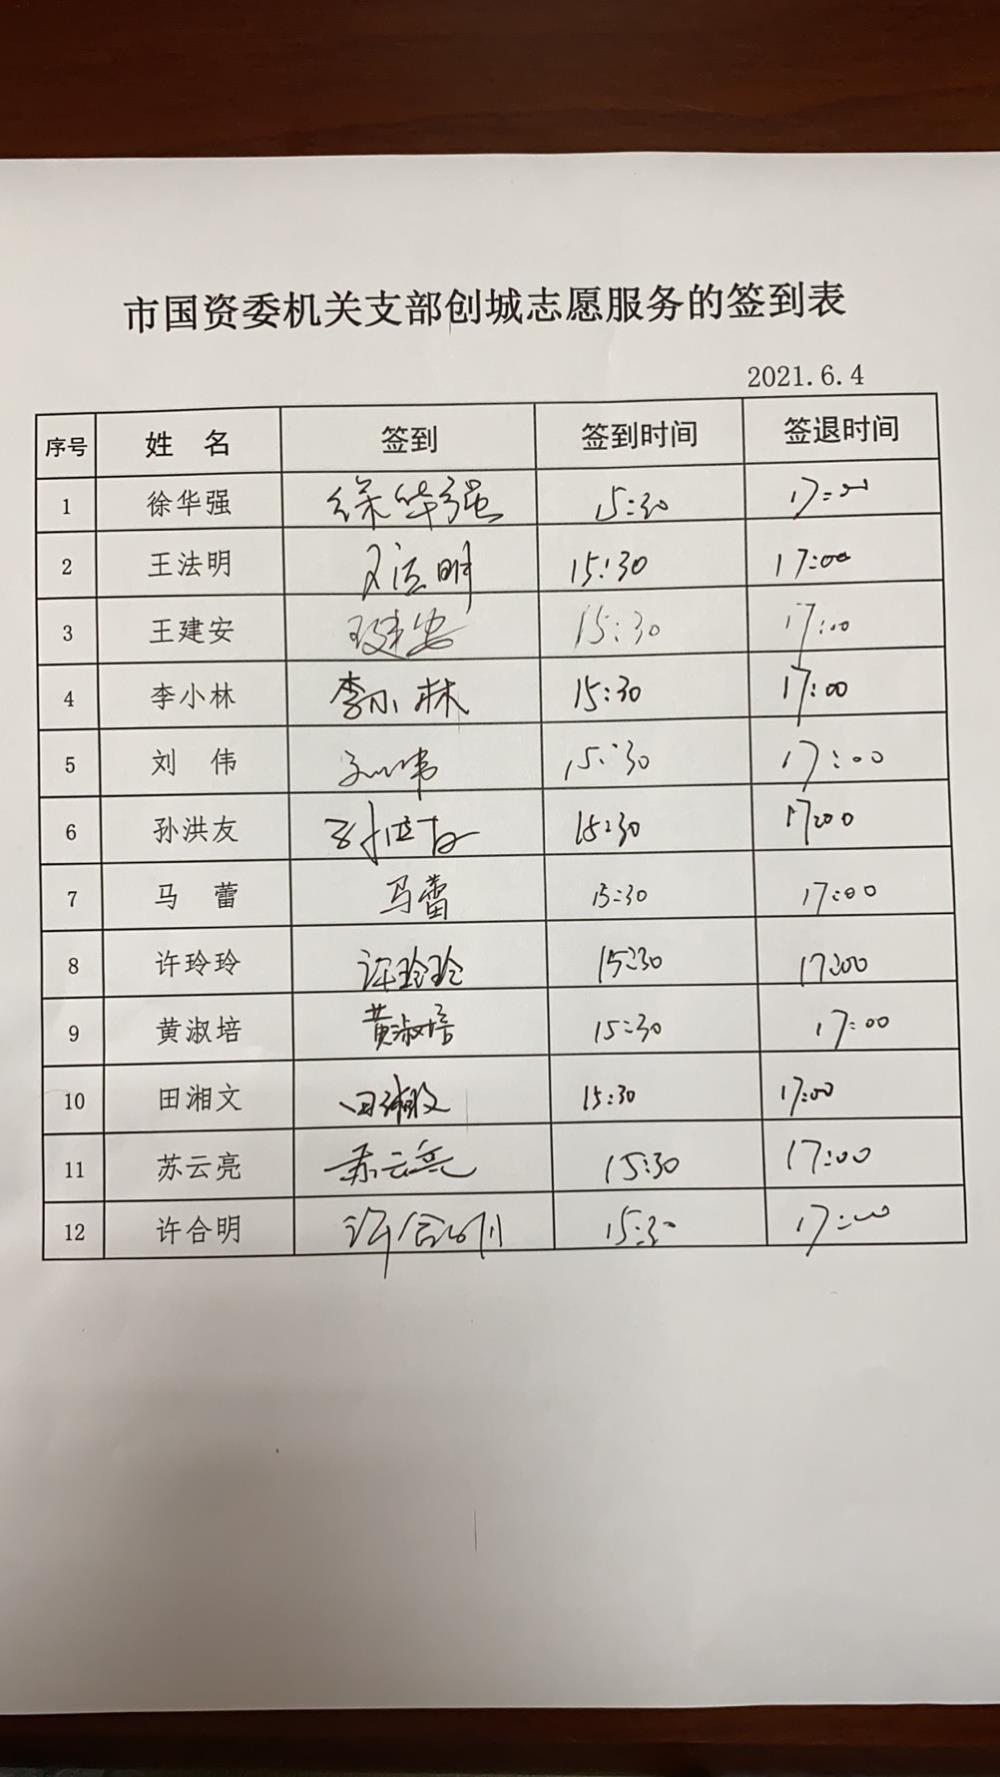 市国资委机关支部创城志愿服务的签到表
2021.6.4
序号 姓 名 签到 签到时间 签退时间
1 徐华强 徐华强 15:30 17:00
2 王法明 王法明 15:30 17:00
3 王建安 王建安 15:30 17:00
4 李小林 李小林 15:30 17:00
5 刘 伟 刘伟 15:30 17:00
6 孙洪友 孙洪友 15:30 17:00
7 马 蕾 马蕾 15:30 17:00
8 许玲玲 许玲玲 15:30 17:00
9 黄淑培 黄淑培 15:30 17:00
10 田湘文 田湘文 15:30 17:00
11 苏云亮 苏云亮 15:30 17:00
12 许合明 许合明 15:30 17:00